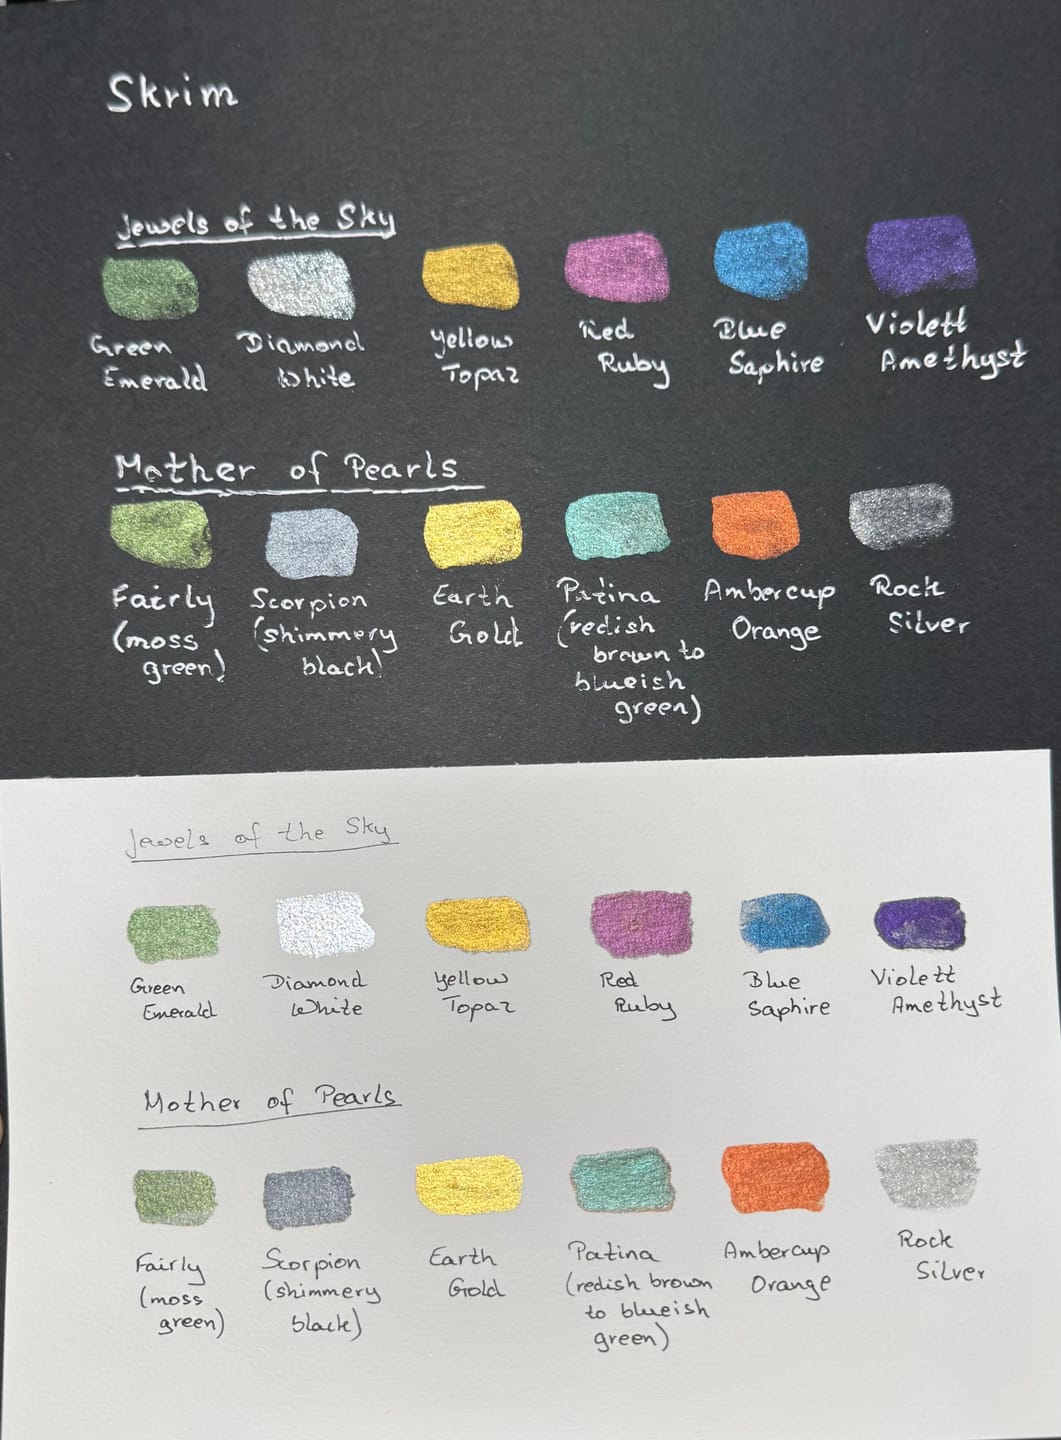 Skrim
Jewels of the Sky
Green
Emerald
Diamond
White
Yellow
Topaz
Red
Ruby
Blue
Saphire
Violett
Amethyst
Mother of Pearls
Fairly
(moss
green)
Scorpion
(shimmery
black)
Earth
Gold
Patina
(redish
brown to
blueish
green)
Ambercup
Orange
Rock
Silver
Jewels of the Sky
Green
Emerald
Diamond
White
Yellow
Topaz
Red
Ruby
Blue
Saphire
Violett
Amethyst
Mother of Pearls
Fairly
(moss
green)
Scorpion
(shimmery
black)
Earth
Gold
Patina
(redish brown
to blueish
green)
Ambercup
Orange
Rock
Silver